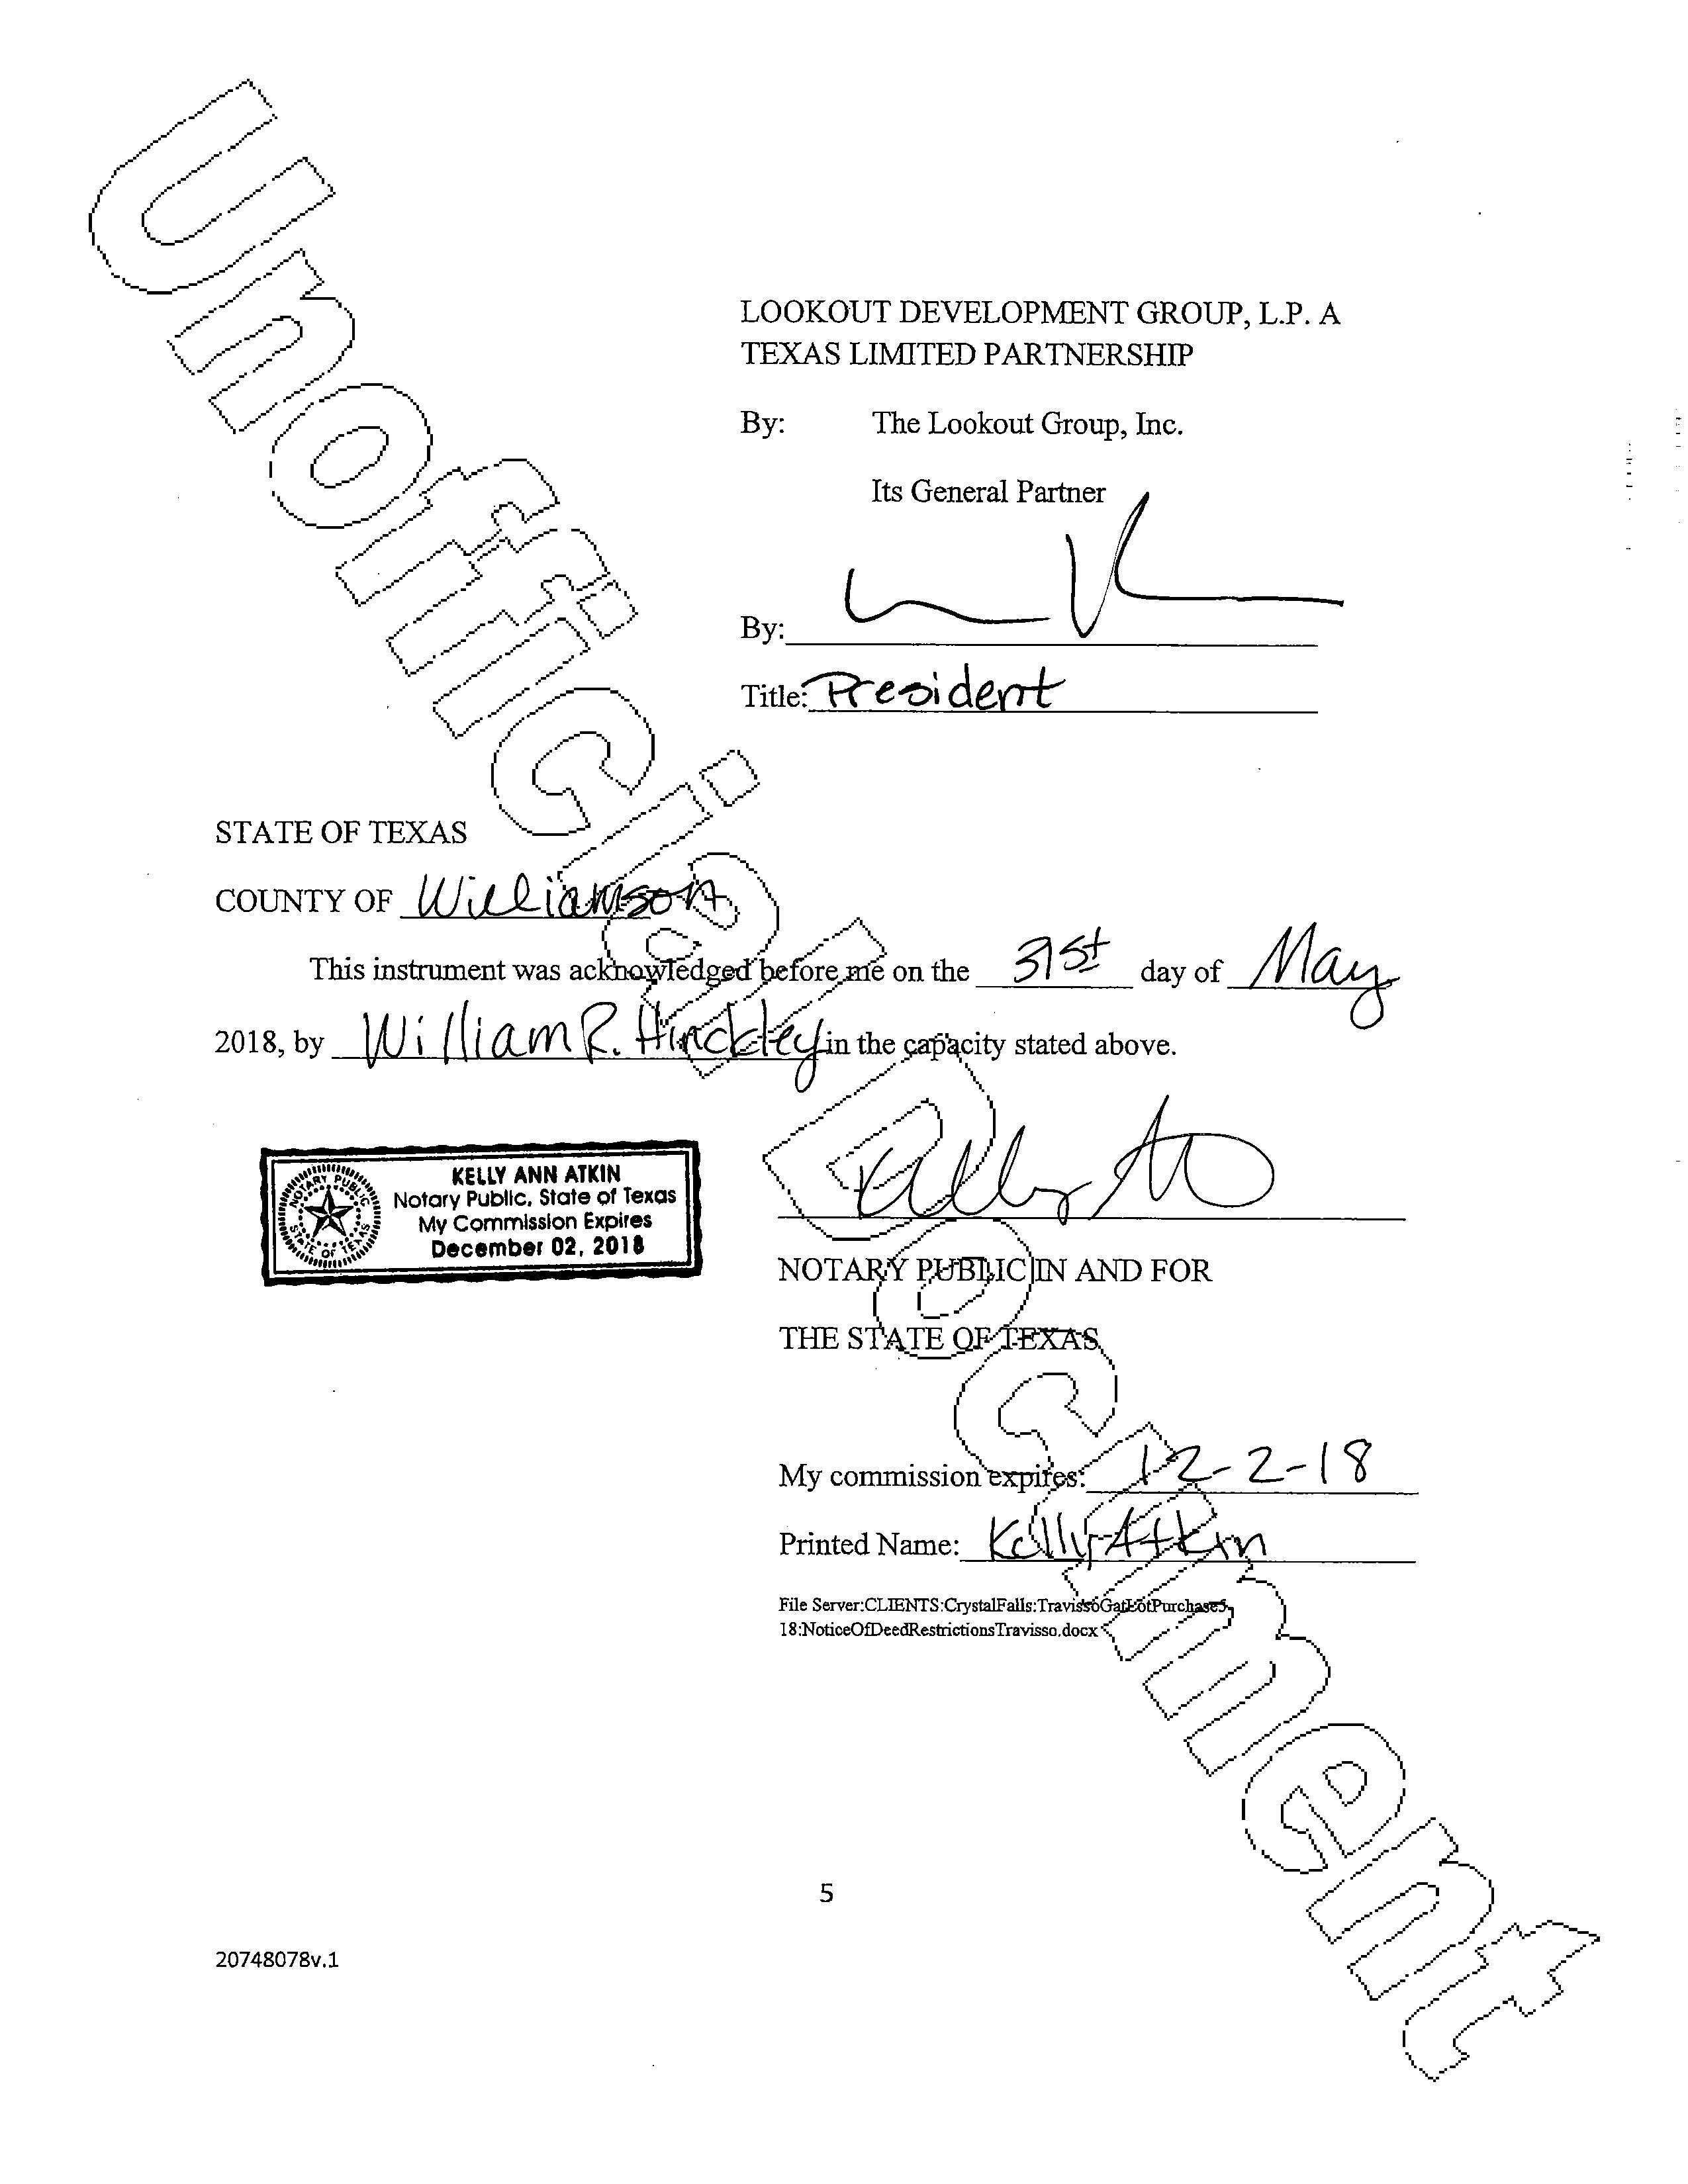 LOOKOUT DEVELOPMENT GROUP, L.P. A
TEXAS LIMITED PARTNERSHIP
By: The Lookout Group, Inc.
Its General Partner
By:
Title: President
STATE OF TEXAS
COUNTY OF Williamson
This instrument was acknowledged before me on the 31st day of May
2018, by William R. Hinckley in the capacity stated above.
KELLY ANN ATKIN
Notary Public, State of Texas
My Commission Expires
December 02, 2018
NOTARY PUBLIC
STATE OF TEXAS
Kelly
NOTARY PUBLIC IN AND FOR
THE STATE OF TEXAS
My commission expires: 12-2-18
Printed Name: Kelly Atkin
File Server:CLIENTS:CrystalFalls:TravissoGatLotPurchase5-
18:NoticeOfDeedRestrictionsTravisso.docx
5
20748078v.1
Unofficial Document